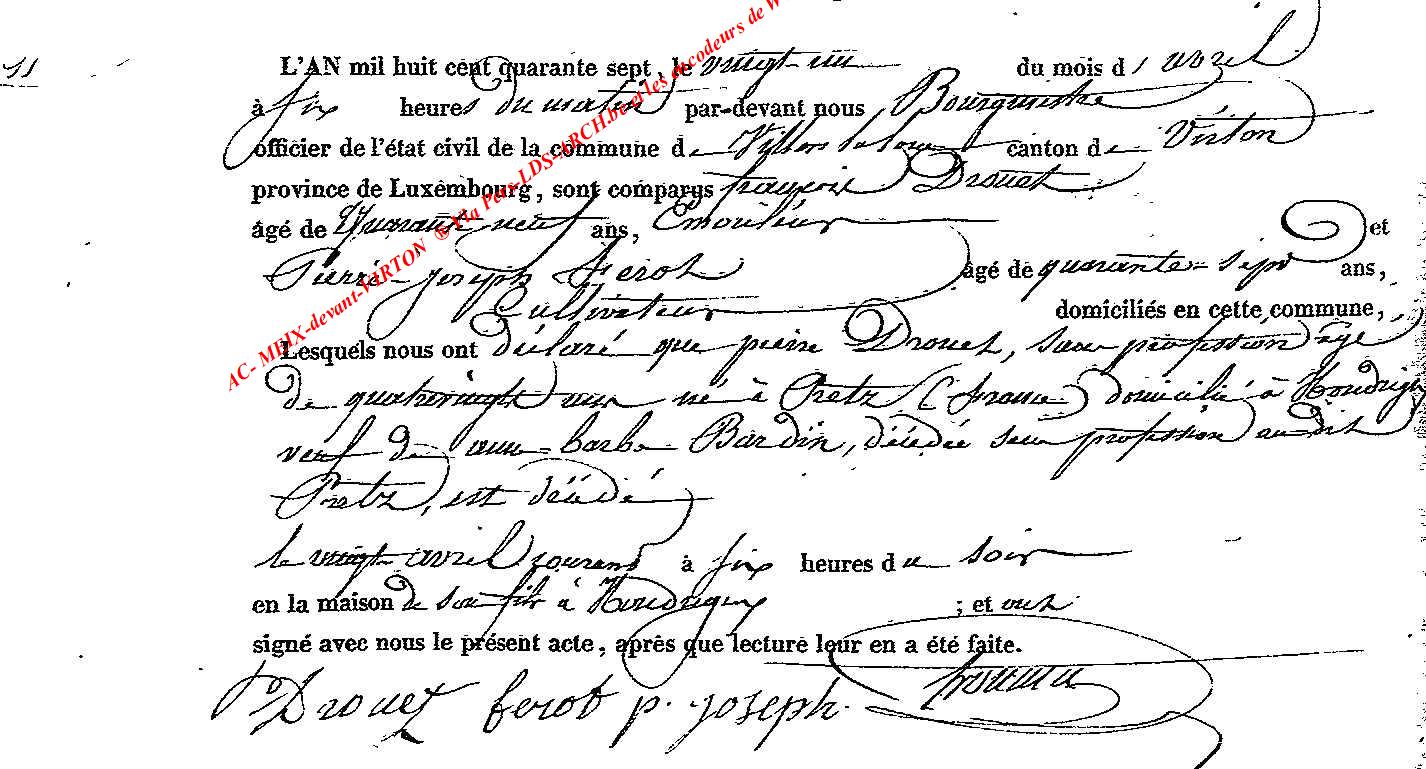 11
L'AN mil huit cent quarante sept, le vingt un du mois d'avril
à six heures du matin par-devant nous Bourgmestre
officier de l'état civil de la commune de Villers la loue canton de Virton
province de Luxembourg, sont comparus françois Drouet
âgé de Quarante neuf ans, Emouleur et
Pierre Joseph Ferot âgé de quarante-sept ans,
Cultivateur domiciliés en cette commune,
Lesquels nous ont déclaré que pierre Drouet, sans profession âgé
de quatrevingt ans né à Pretz (france) domicilié à Houdrigny
veuf de anne-barbe Bardin, décédée sans profession audit
Pretz, est décédé
le vingt avril courant à six heures du soir
en la maison de son fils à Houdrigny ; et ont
signé avec nous le présent acte, après que lecture leur en a été faite.
Drouet ferot p. joseph.
AC- MEIX-devant-VIRTON ® Via Pers-LDS-ARCH.be et les encodeurs de